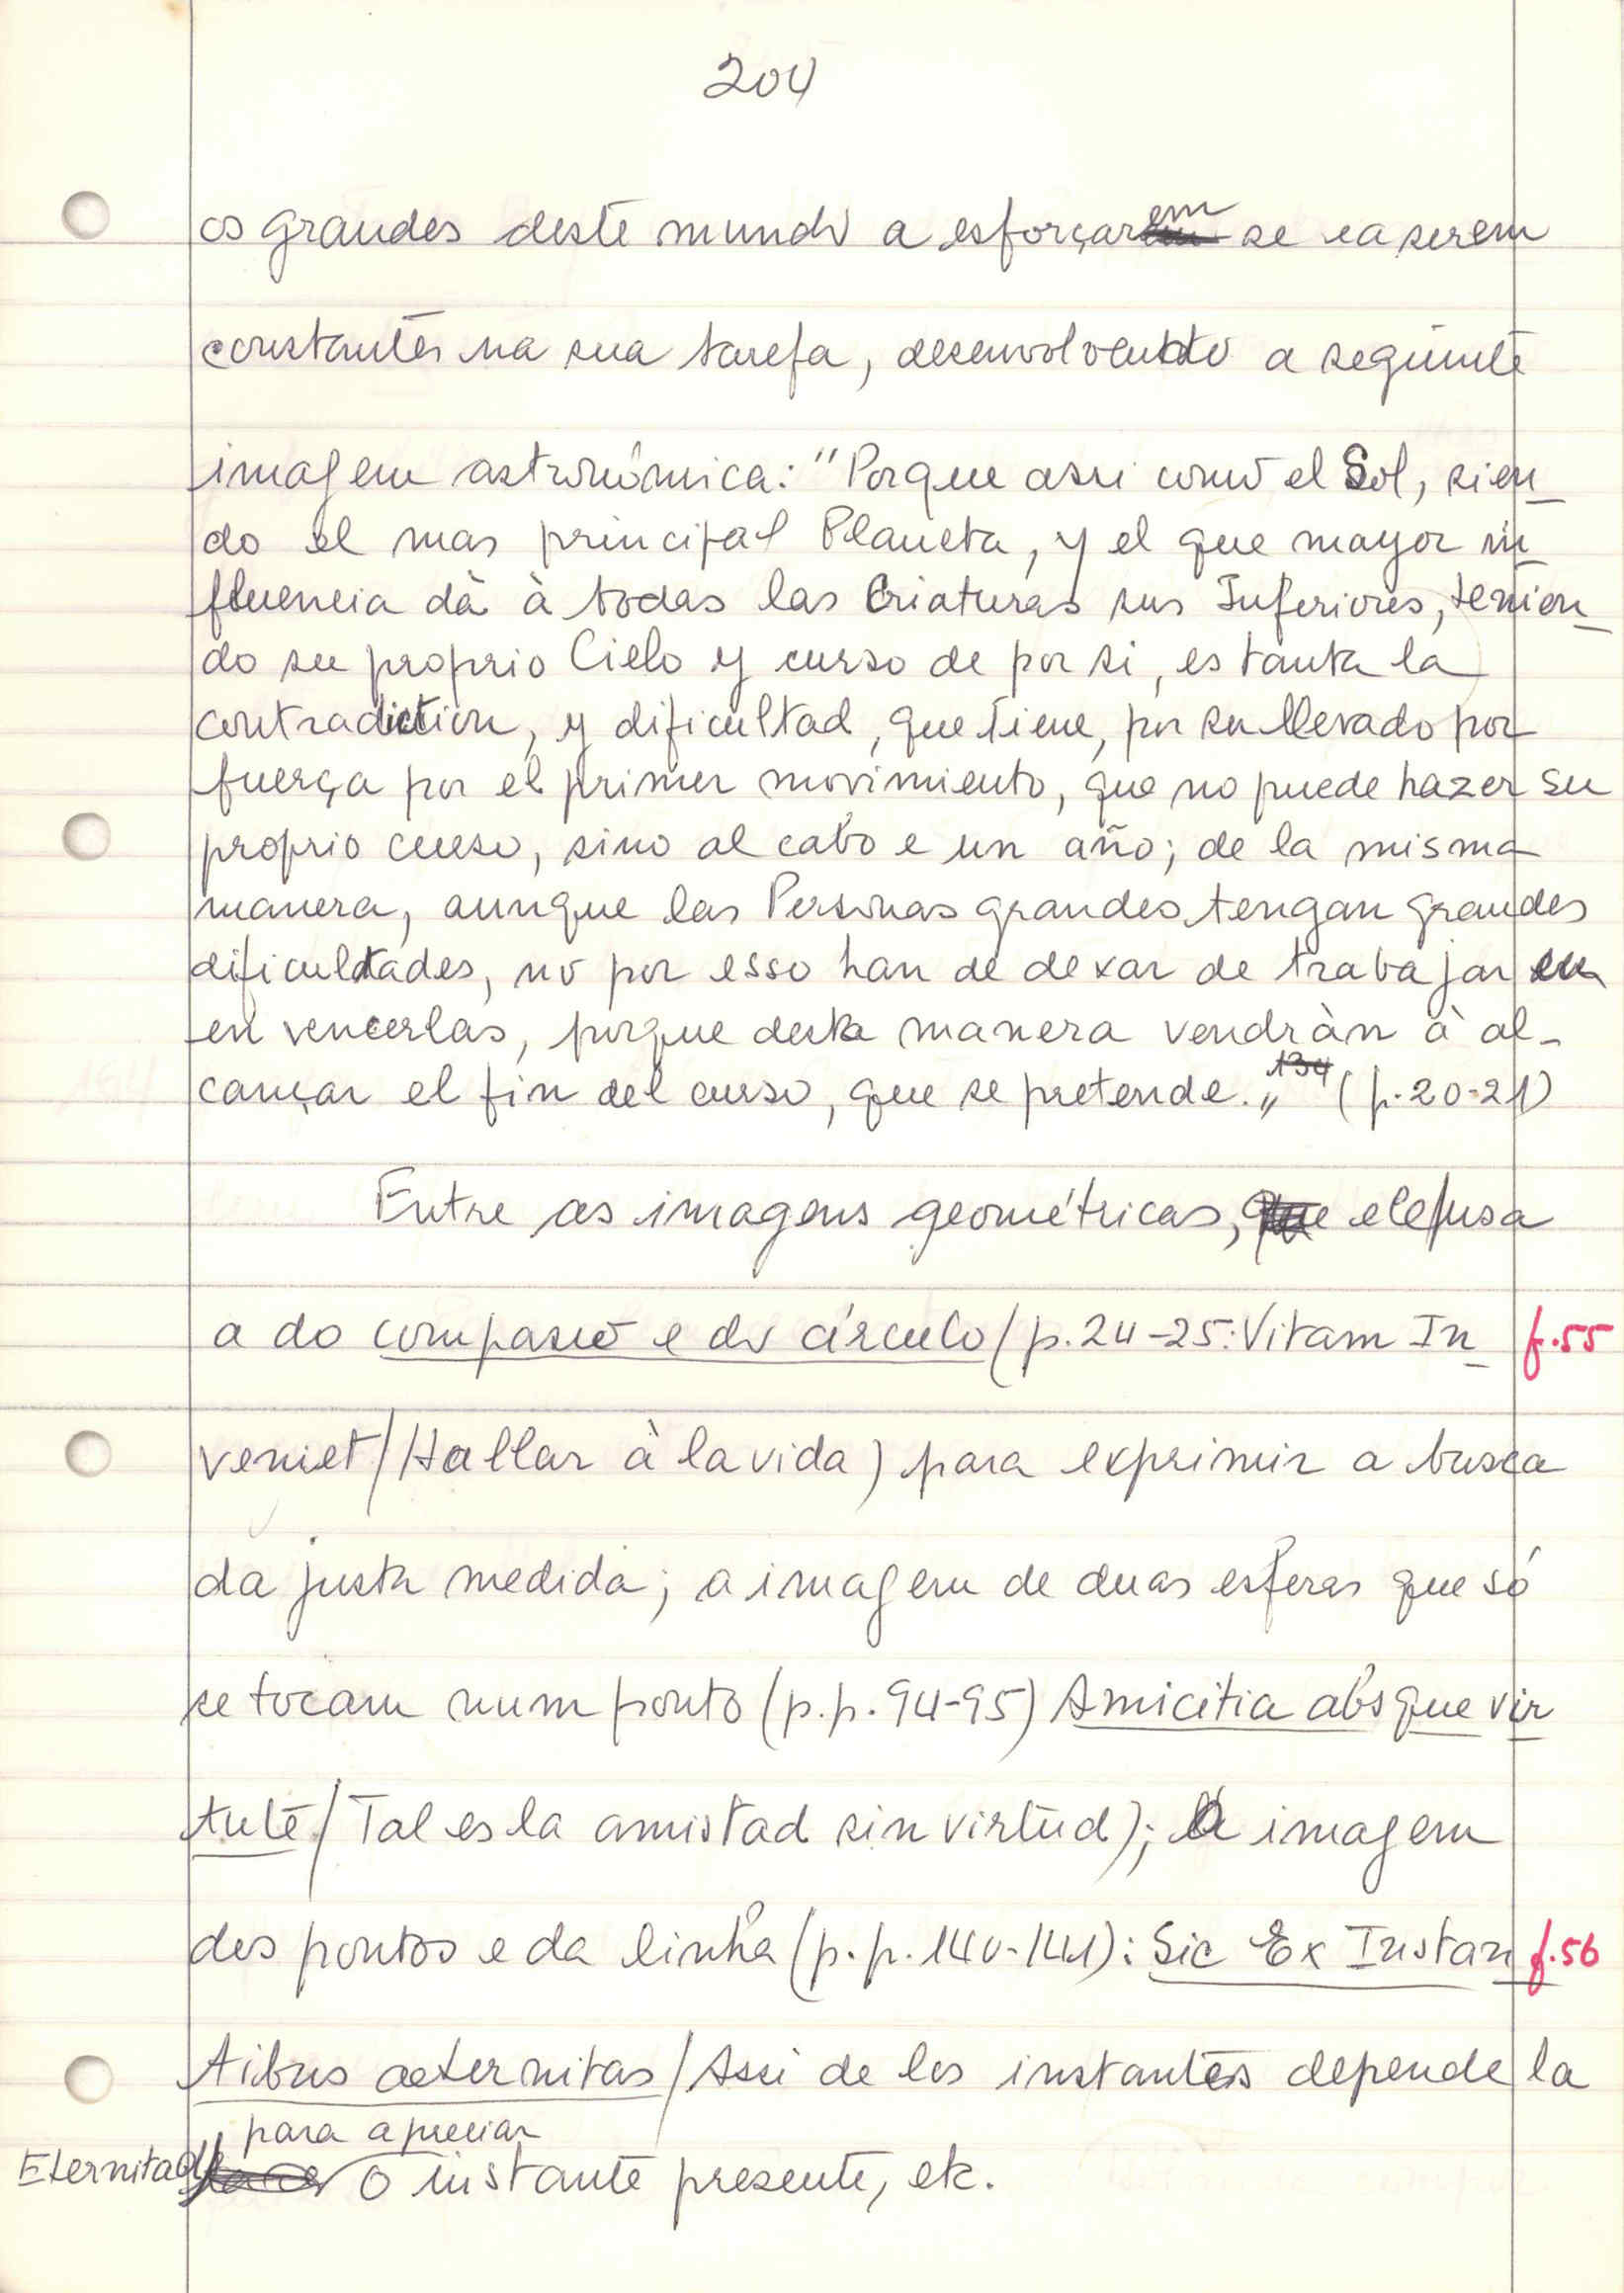 204
os grandes deste mundo a esforçarem se e a serem
constantes na sua tarefa, desenvolvendo a seguinte
imagem astronómica: "Porque assi como el Sol, sien
do el mas principal Planeta, y el que mayor in
fluencia dà à todas las Criaturas sus Inferiores, tenien
do su proprio Cielo y curso de por si, es tanta la
contradiction, y dificultad, que tiene, por ser llevado por
fuerça por el primer movimiento, que no puede hazer su
proprio curso, sino al cabo e un año; de la misma
manera, aunque las Personas grandes tengan grandes
dificultades, no por esso han de dexar de trabajar en
en vencerlas, porque desta manera vendràn à al-
cançar el fin del curso, que se pretende." 134 (p. 20-21)
Entre as imagens geométricas, que ele usa
a do compasso e do círculo (p. 24-25: Vitam In f. 55
veniet / Hallar à la vida) para exprimir a busca
da justa medida; a imagem de duas esferas que só
se tocam num ponto (p.p. 94-95) Amicitia absque vir
tute / Tal es la amistad sin virtud); a imagem
dos pontos e da linha (p.p. 140-141): Sic Ex Instan f. 56
tibus aeternitas / Assi de los instantes depende la
para apreciar
Eternitad) o instante presente, etc.